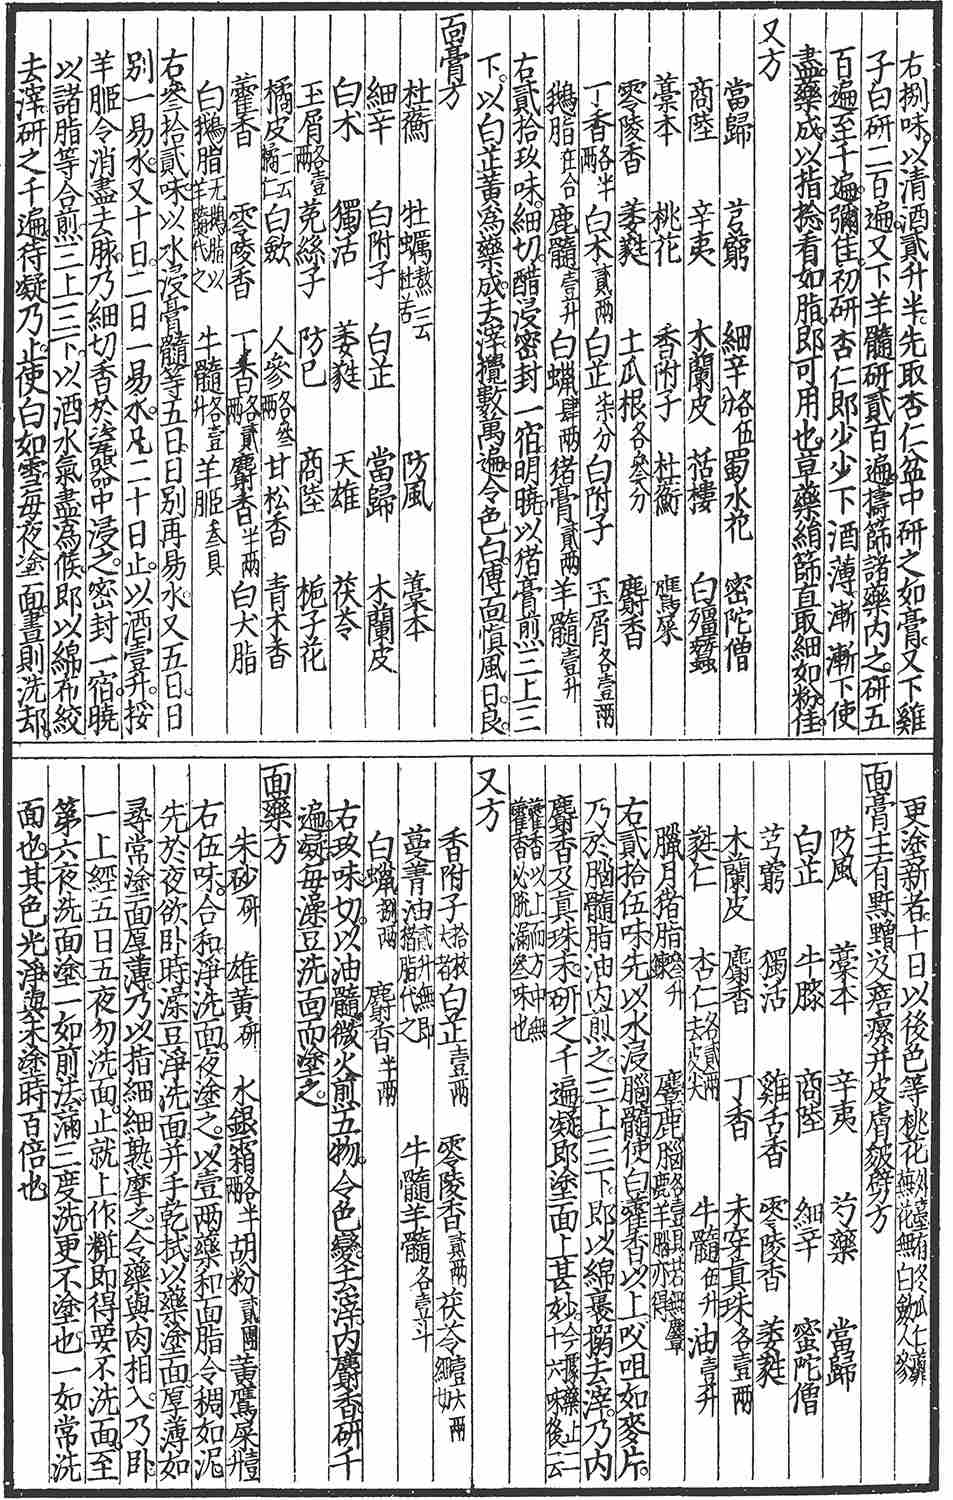 右捌味。以清酒貳升半。先取杏仁盆中研之如膏。又下雞
子白研二百遍。又下羊髓研貳百遍。擣篩諸藥內之。研五
百遍至千遍。彌佳。初研杏仁即少少下酒薄漸漸下使
盡。藥成。以指捻看如脂即可用也。草藥絹篩直取細如粉佳。
又方
當歸 芎藭 細辛各伍分 蜀水花 密陀僧
商陸 辛夷 木蘭皮 栝樓 白殭蠶
藁本 桃花 香附子 杜蘅 鷹屎
零陵香 萎蕤 土瓜根各參分 麝香
丁香各半兩 白朮貳兩 白芷柒分 白附子 玉屑各壹兩
鵝脂在合 鹿髓壹升 白蠟肆兩 猪膏貳兩 羊髓壹升
右貳拾玖味。細切。醋浸密封一宿。明曉以猪膏煎三上三
下。以白芷黃為藥成。去滓攪數萬遍。令色白。傅面。慎風日。良。
面膏方
杜蘅 牡蠣熬三云杜若 防風 藁本
細辛 白附子 白芷 當歸 木蘭皮
白朮 獨活 萎蕤 天雄 茯苓
玉屑各壹兩 菟絲子 防己 商陸 梔子花
橘皮一云橘仁 白斂 人參各參兩 甘松香 青木香
藿香 零陵香 丁香各貳兩 麝香半兩 白犬脂
白鵝脂无鵝脂以羊髓代之 牛髓各壹升 羊胵參具
右參拾貳味。以水浸膏髓等五日。日別再易水。又五日。日
別一易水。又十日。二日一易水。凡二十日止。以酒壹升。挼
羊胵令消盡。去脉。乃細切香於瓷器中浸之。密封一宿。曉
以諸脂等合煎。三上三下。以酒水氣盡為候。即以綿布絞
去滓。研之千遍。待凝乃止。使白如雪。每夜塗面。晝則洗却。
更塗新者。十日以後色等桃花外臺有冬瓜仁蘼蕪花無白斂人參
面膏主有䵟䵴及痦瘰并皮膚皴劈方
防風 藁本 辛夷 芍藥 當歸
白芷 牛膝 商陸 細辛 密陀僧
芎藭 獨活 雞舌香 零陵香 萎蕤
木蘭皮 麝香 丁香 未穿真珠各壹兩
蕤仁 杏仁各貳兩去皮尖 牛髓伍升 油壹升
臘月猪脂參升鍊 麞鹿腦各壹具若無麞鹿羊腦亦得
右貳拾伍味。先以水浸腦髓使白。藿香以上㕮咀如麥片。
乃於腦髓脂油內煎之。三上三下。即以綿裹搦去滓。乃內
麝香及真珠末。研之千遍。凝。即塗面上。甚妙。今據藥止二十六味後一云
藿香以上而方中無藿香必脫漏參味也
又方
香附子拾枚大者 白芷壹兩 零陵香貳兩 茯苓壹大兩細切
蔓菁油貳升無即猪脂代之 牛髓羊髓各壹斗
白蠟捌兩 麝香半兩
右玖味。切。以油髓微火煎五物。令色變。去滓。內麝香研千
遍。凝。每澡豆洗面而塗之。
面藥方
朱砂研 雄黃研 水銀霜各半兩 胡粉貳團 黃鷹屎壹升
右伍味。合和。淨洗面。夜塗之。以壹兩藥和面脂。令稠如泥。
先於夜欲卧時。澡豆淨洗面。并手乾拭。以藥塗面。厚薄如
尋常塗面厚薄。乃以指細細熟摩之。令藥與肉相入。乃卧。
一上經五日五夜。勿洗面。止就上作糚即得。要不洗面。至
第六夜洗面。塗一如前法。滿三度洗。更不塗也。一如常洗
面也。其色光淨。與未塗時百倍也。